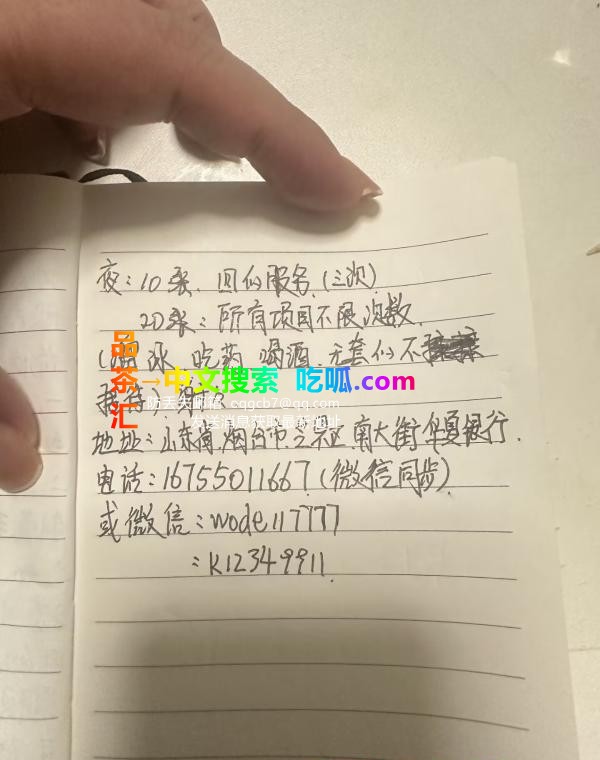 夜：10张．回似服务．(三次)
20张：所有项目不限次数．
(溜冰 吃药 喝酒．无套似不
接待)
品茶汇
→中文搜索 吃呱.com
防丢失邮箱 cqgcb7@qq.com
发送消息获取最新地址
地址：山东省烟台市芝罘区南大街华夏银行．
电话：16755011667．(微信同步)
或微信：wode117777
：k12349911